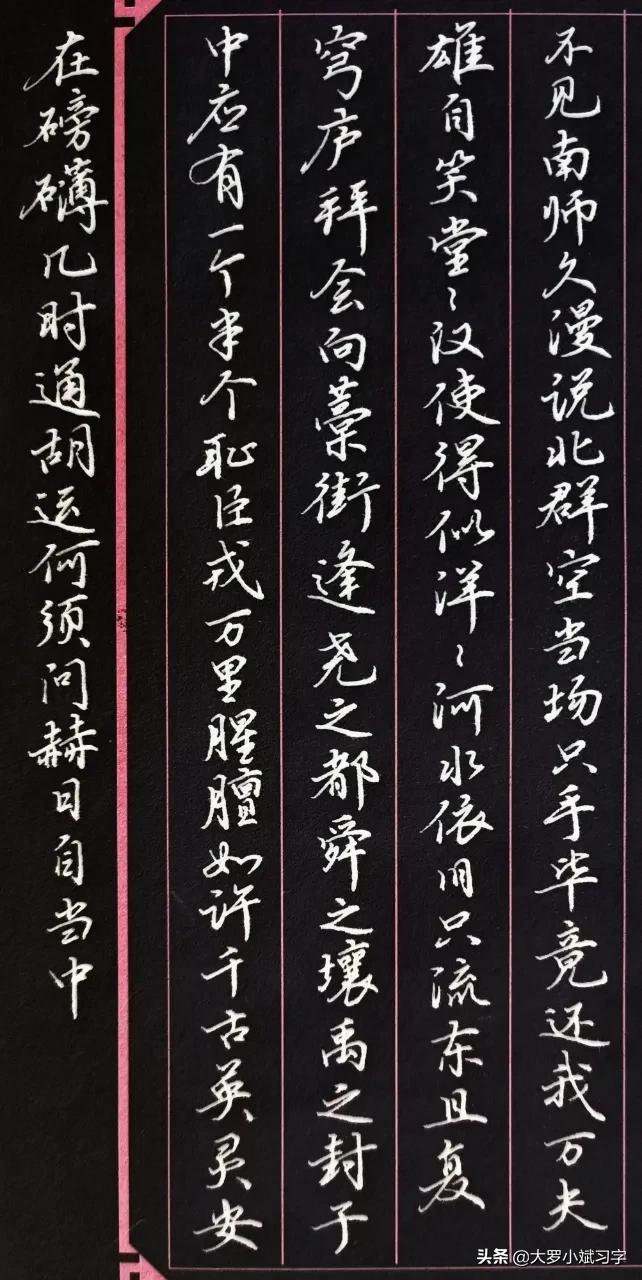 不见南师久漫说北群空当场只手毕竟还我万夫
雄自笑堂〻汉使得似洋〻河水依旧只流东且复
穹庐拜会向藁街逢尧之都舜之壤禹之封于
中应有一个半个耻臣戎万里腥膻如许千古英灵安
在磅礴几时通胡运何须问赫日自当中
头条 @大罗小斌习字